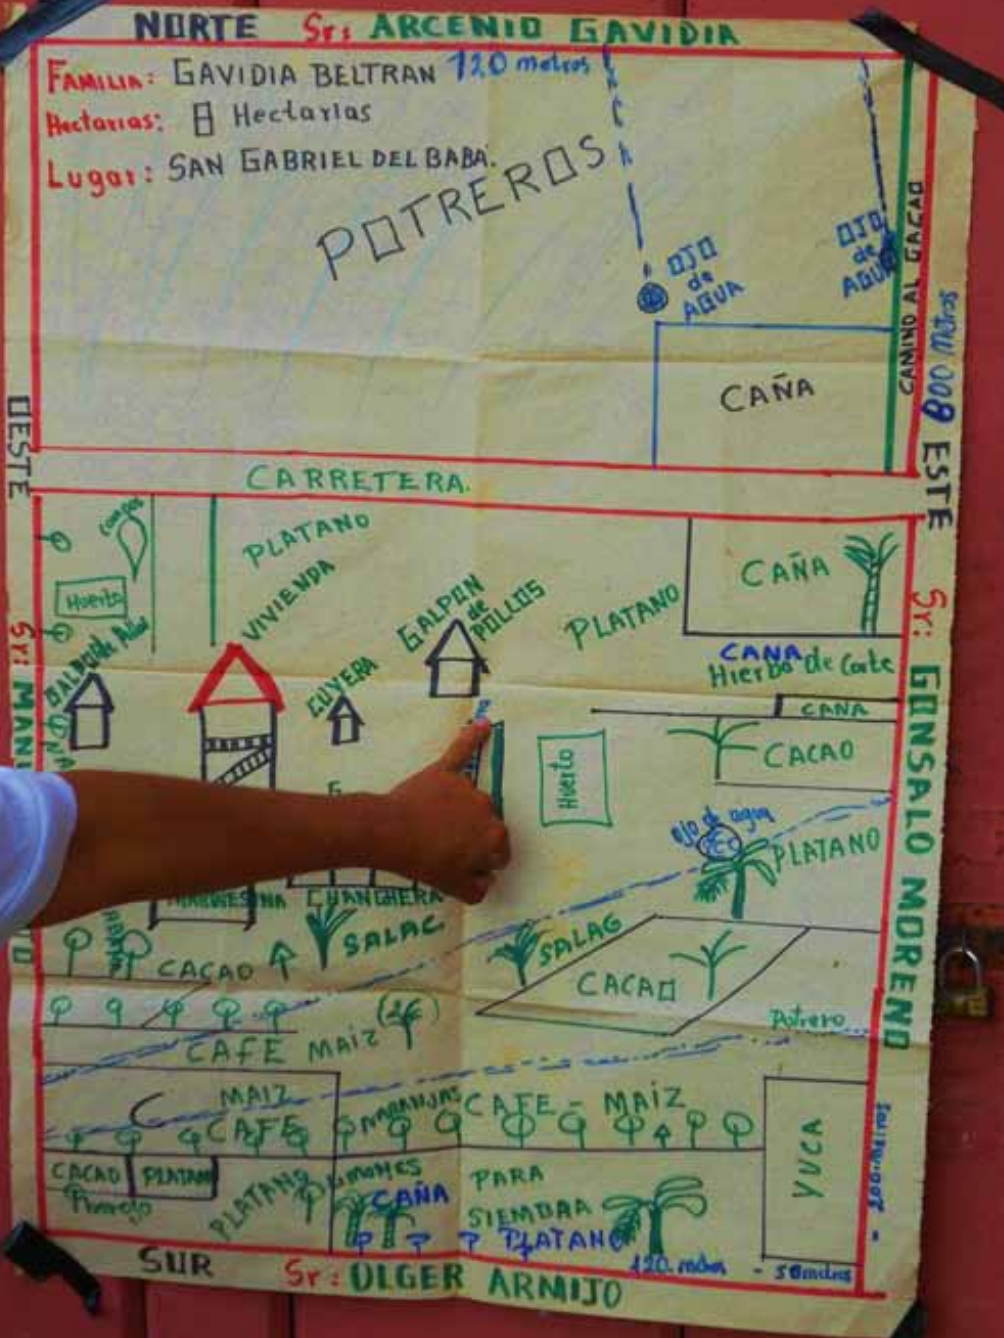 NORTE Sr: ARCENIO GAVIDIA
FAMILIA: GAVIDIA BELTRAN 120 metros
Hectarias: 8 Hectarias
Lugar: SAN GABRIEL DEL BABA.
POTREROS
OJO
de
AGUA
OJO
de
AGUA
CAMINO AL CACAO
800 metros
ESTE
CAÑA
OESTE
CARRETERA.
PLATANO
VIVIENDA
Huerto
GALPON
de
POLLOS
CUYERA
PLATANO
CAÑA
CANA
Hierba de Corte
CAÑA
CACAO
Huerto
ojo de agua
PLATANO
Sr: GONSALO MORENO
CHANCHERA
SALAG
SALAG
CACAO
CACAO
Potrero
CAFE MAIZ
MAIZ
CAFE
NARANJAS
CAFE - MAIZ
YUCA
CACAO
PLATANO
PLATANO
LIMONES
CAÑA
PARA
SIEMBRA
PLATANO
120 metros - 50 metros
SUR Sr: OLGER ARMIJO